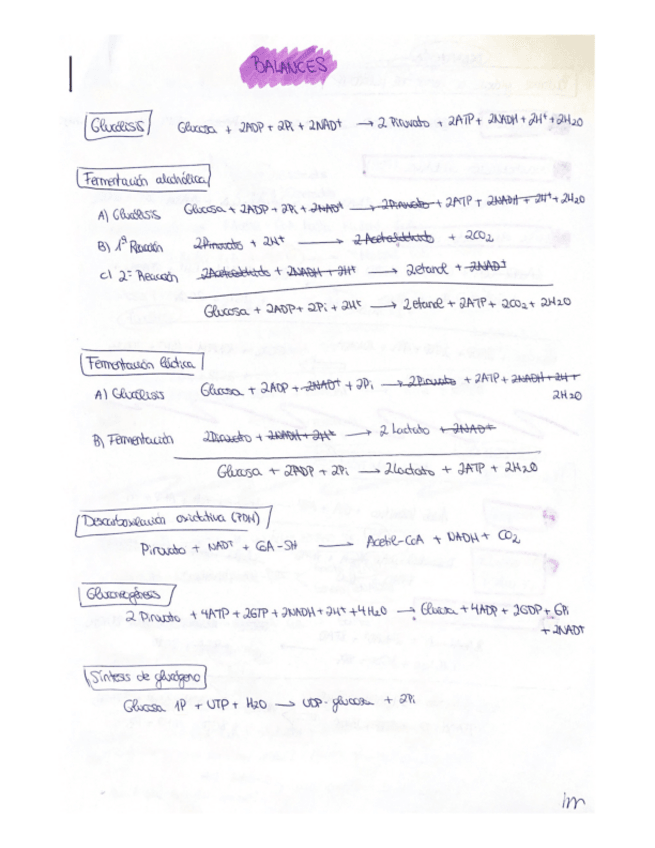 BALANCES
Glucólisis
Glucosa + 2ADP + 2Pi + 2NAD⁺ → 2 Piruvato + 2ATP + 2NADH + 2H⁺ + 2H2O
Fermentación alcohólica
A) Glucólisis Glucosa + 2ADP + 2Pi + 2NAD⁺ → 2Piruvato + 2ATP + 2NADH + 2H⁺ + 2H2O
B) 1ª Reacción 2Piruvato + 2H⁺ → 2 Acetaldehído + 2CO2
C) 2ª Reacción 2Acetaldehído + 2NADH + 2H⁺ → 2etanol + 2NAD⁺
Glucosa + 2ADP + 2Pi + 2H⁺ → 2etanol + 2ATP + 2CO2 + 2H2O
Fermentación láctica
A) Glucólisis Glucosa + 2ADP + 2NAD⁺ + 2Pi → 2Piruvato + 2ATP + 2NADH + 2H⁺
2H2O
B) Fermentación 2Piruvato + 2NADH + 2H⁺ → 2 Lactato + 2NAD⁺
Glucosa + 2ADP + 2Pi → 2Lactato + 2ATP + 2H2O
Descarboxilación oxidativa (PDH)
Piruvato + NAD⁺ + CoA-SH → Acetil-CoA + NADH + CO2
Gluconeogénesis
2 Piruvato + 4ATP + 2GTP + 2NADH + 2H⁺ + 4H2O → Glucosa + 4ADP + 2GDP + 6Pi
+ 2NAD⁺
Síntesis de glucógeno
Glucosa 1P + UTP + H2O → UDP-glucosa + 2Pi
im